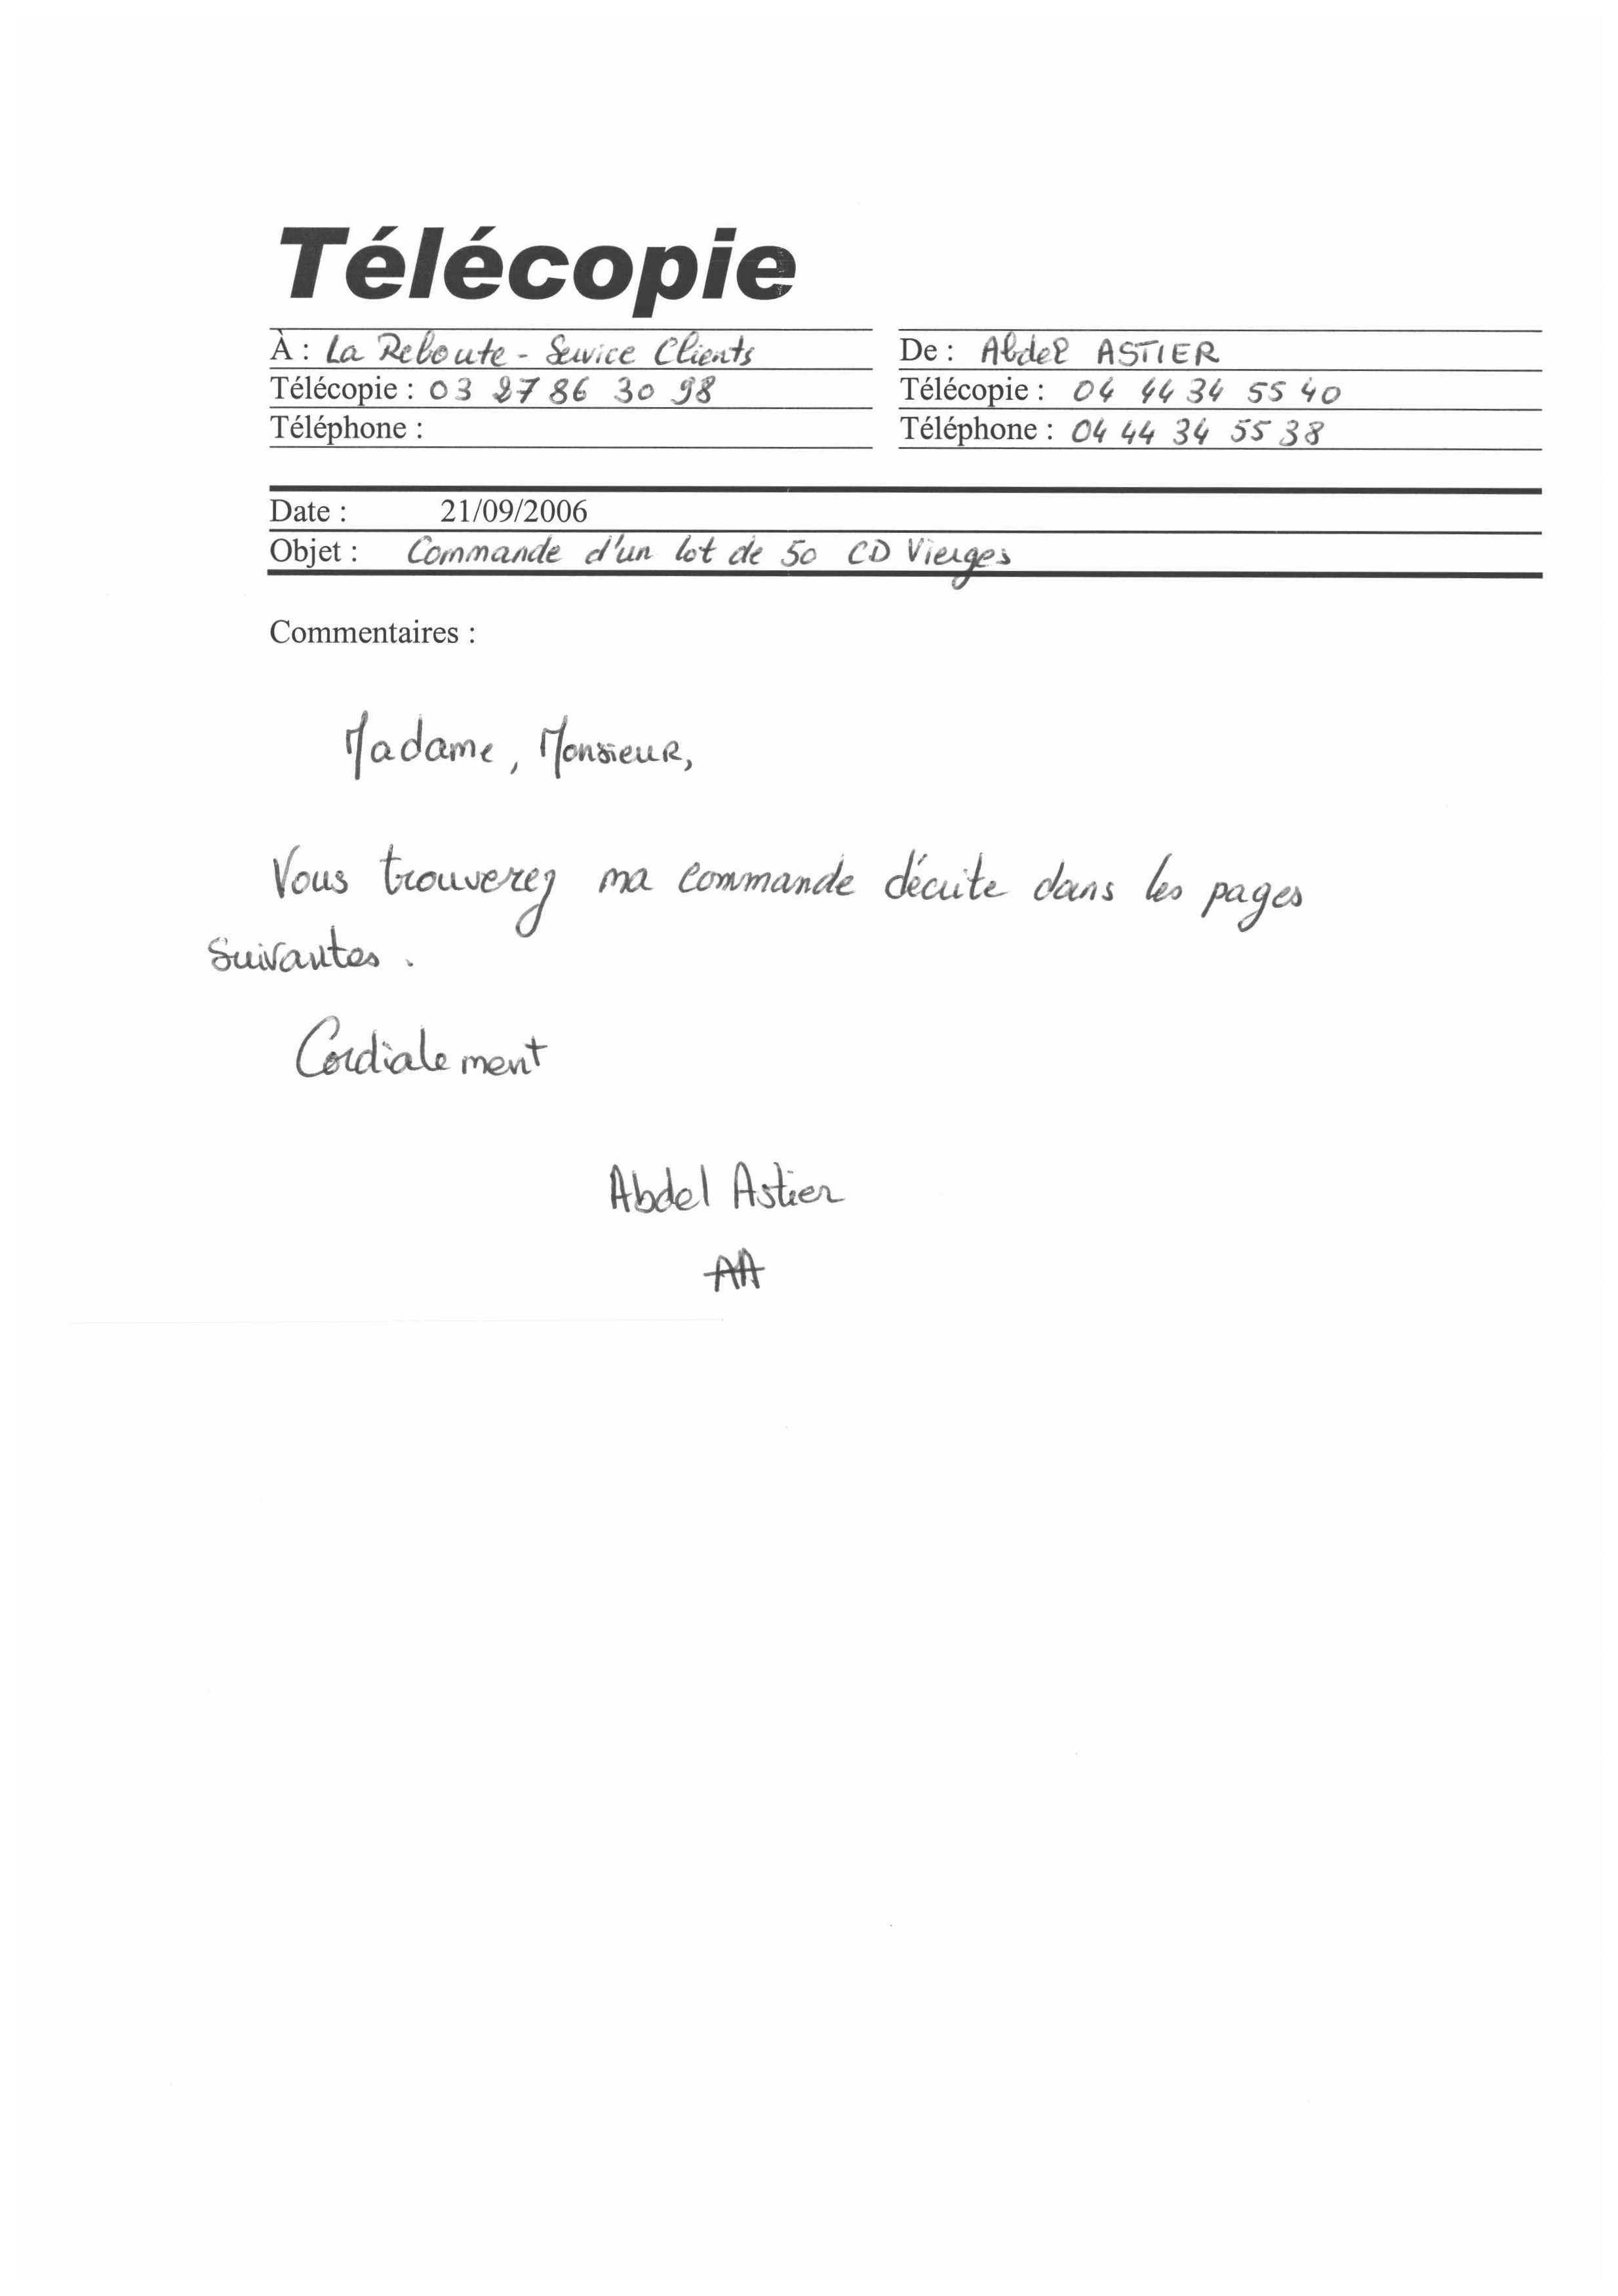 Télécopie
À : La Reboute - Service Clients
De : Abdel ASTIER
Télécopie : 03 27 86 30 98
Télécopie : 04 44 34 55 40
Téléphone :
Téléphone : 04 44 34 55 38
Date : 21/09/2006
Objet : Commande d'un lot de 50 CD Vierges
Commentaires :
Madame, Monsieur,
Vous trouverez ma commande décrite dans les pages
suivantes.
Cordialement
Abdel Astier
AA